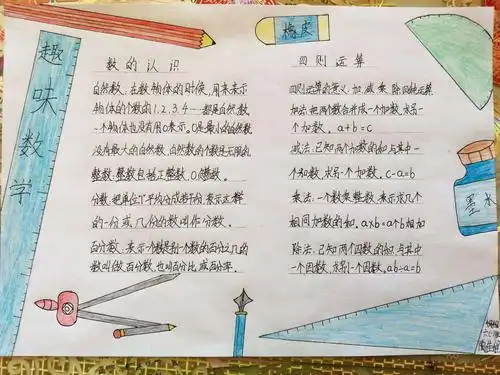 趣味数学
数的认识
自然数、在数物体的时候,用来表示
物体的个数的1.2.3.4……都是自然数
一个物体也没有用0来示。0是最小的自然数
没有最大的自然数,自然数的个数是无限的
整数:整数包括正整数、0、
分数:把单位"1"平均分成若干份,表示这样
的一份或几份的数叫作分数。
百分数:表示一个数是另一个数的百分之几的
数叫做百分数,也叫百分比或百分率。
橡皮
四则运算
四则运算的意义:加 减 乘 除四种运算
加法:把两个数合并成一个加数,求另一
个加数。a+b=c
减法:已知两个加数的和与其中一
个加数,求另一个加数。c-a=b
乘法:一个数乘整数,表示求几个
相同加数的和。axb=a个b相加
除法:已知两个因数的和与其中
一个因数,求另一个因数。ab÷a=b
墨水